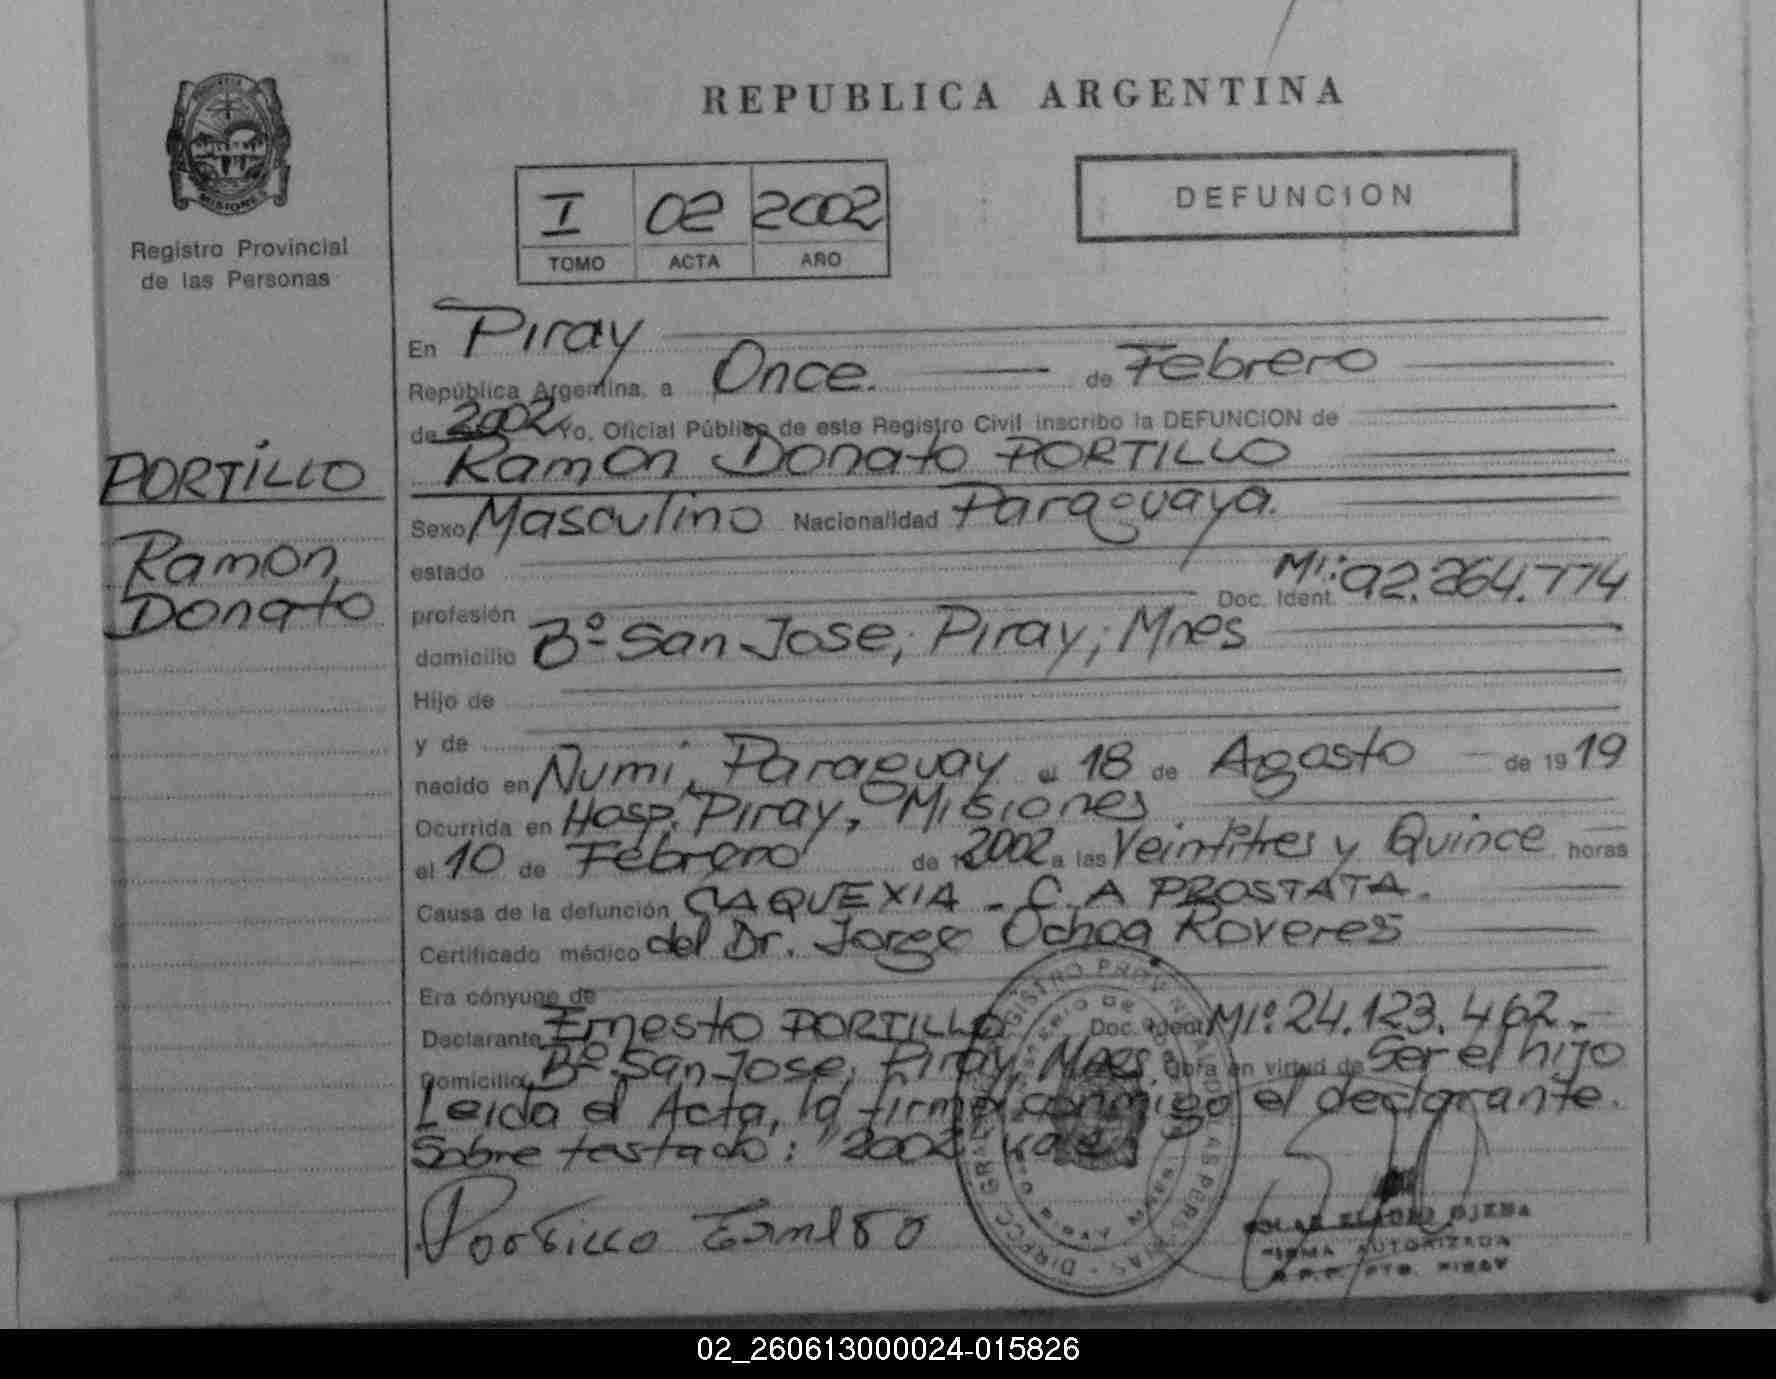 REPUBLICA ARGENTINA
MISIONES
Registro Provincial
de las Personas
I 02 2002
TOMO ACTA AÑO
DEFUNCION
PORTILLO
Ramon
Donato
En Piray
República Argentina, a Once. de Febrero
de 2002 Yo, Oficial Público de este Registro Civil inscribo la DEFUNCION de
Ramon Donato PORTILLO
Sexo Masculino Nacionalidad Paraguaya.
estado
profesión Doc. Ident. MI: 92.264.774
domicilio Bº San Jose, Piray, Mnes
Hijo de
y de
nacido en Ñumi, Paraguay el 18 de Agosto de 1919
Ocurrida en Hosp. Piray, Misiones
el 10 de Febrero de 2002 a las Veintitres y Quince horas
Causa de la defunción CAQUEXIA - C.A PROSTATA.
Certificado médico del Dr. Jorge Ochoa Roveres
Era cónyuge de
Declarante Ernesto PORTILLO Doc. Ident MIº 24.123.462.-
Domicilio Bº San Jose, Piray, Mnes. Obra en virtud de Ser el hijo
Leida el Acta, la firma conmigo el declarante.
Sobre testado: "2002" vale
Portillo Ernesto
FIRMA AUTORIZADA
R.P.P. PTO. PIRAY
02_260613000024-015826